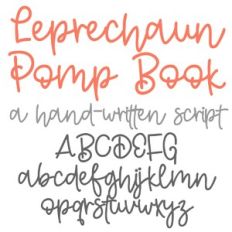 Leprechaun
Pomp Book
a hand-written script
ABCDEFG
abcdefghijklmn
opqrstuvwxyz